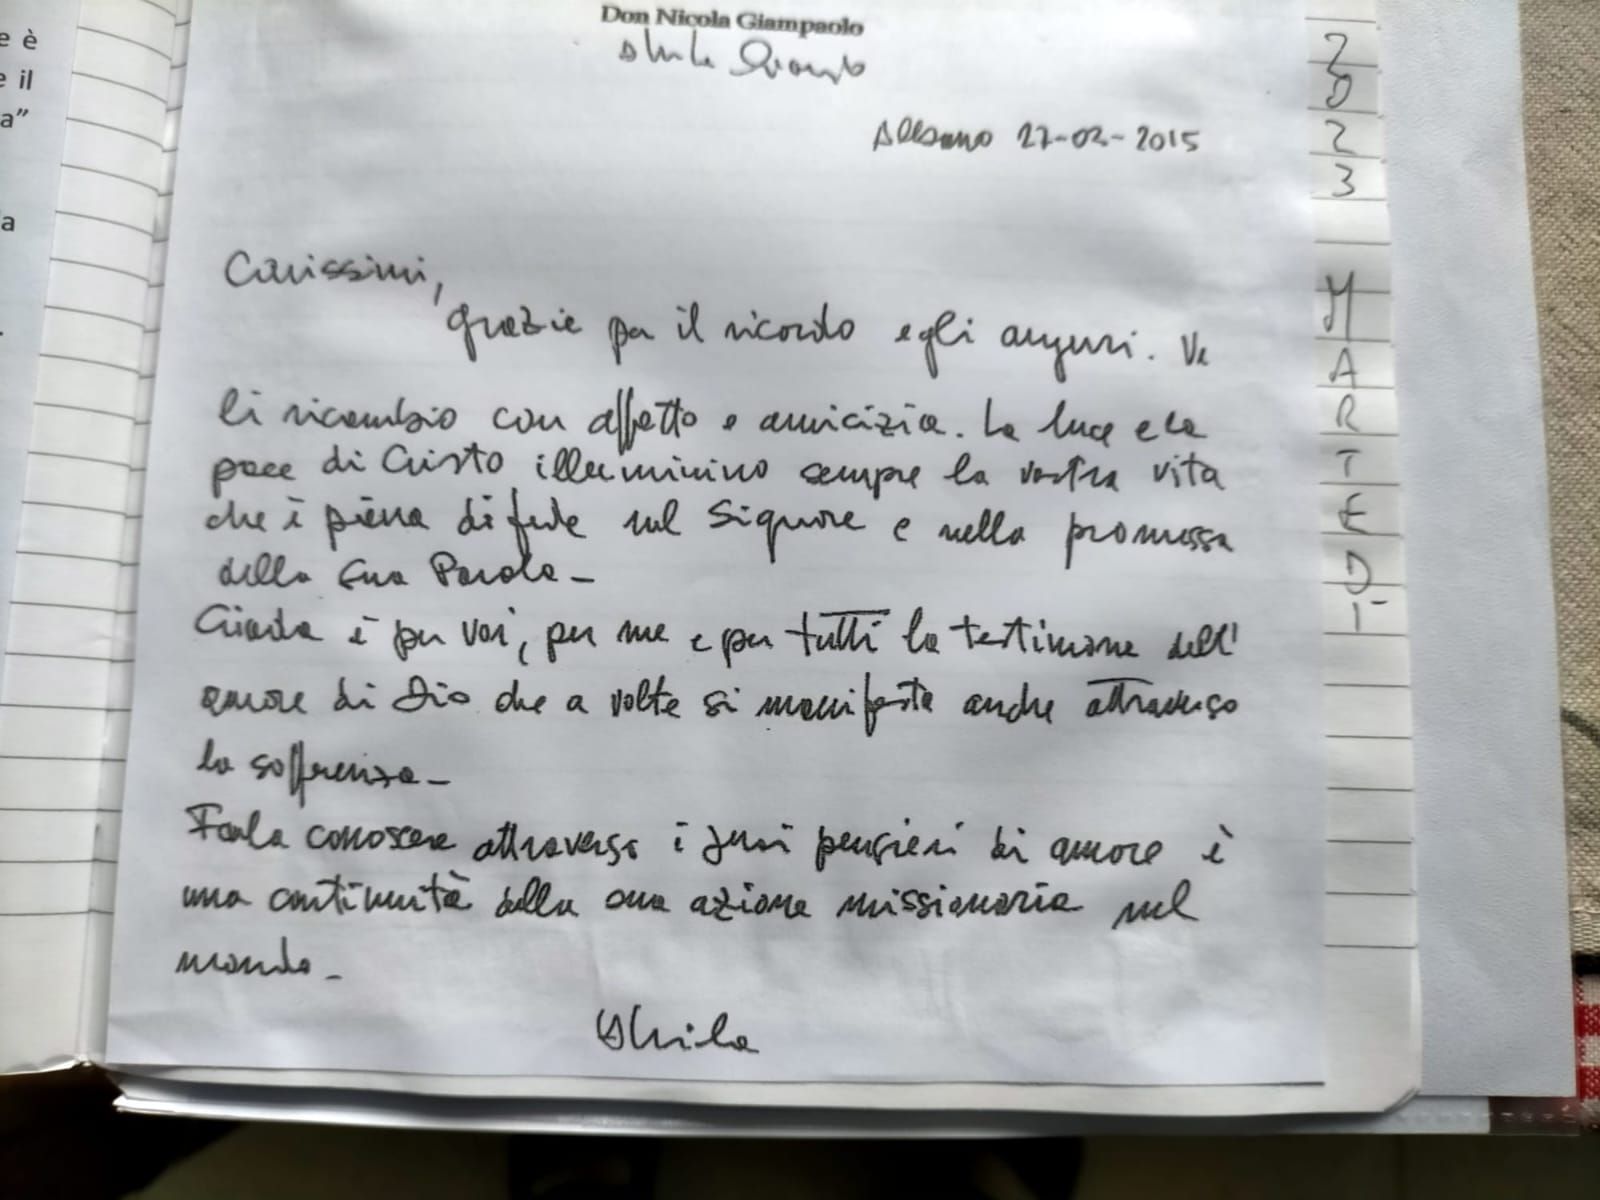 e è
e il
a”
a
Don Nicola Giampaolo
27-02-2015
Carissimi,
grazie per il ricordo e gli auguri. Ve
li ricambio con affetto e amicizia. La luce e la
pace di Cristo illuminino sempre la vostra vita
che è piena di fede nel Signore e nella promessa
della Sua Parola -
è per voi, per me e per tutti la testimone dell'
amore di Dio che a volte si manifesta anche attraverso
la sofferenza -
Farla conoscere attraverso i suoi pensieri di amore è
una continuità della sua azione missionaria nel
mondo -
2023 MARTEDÌ